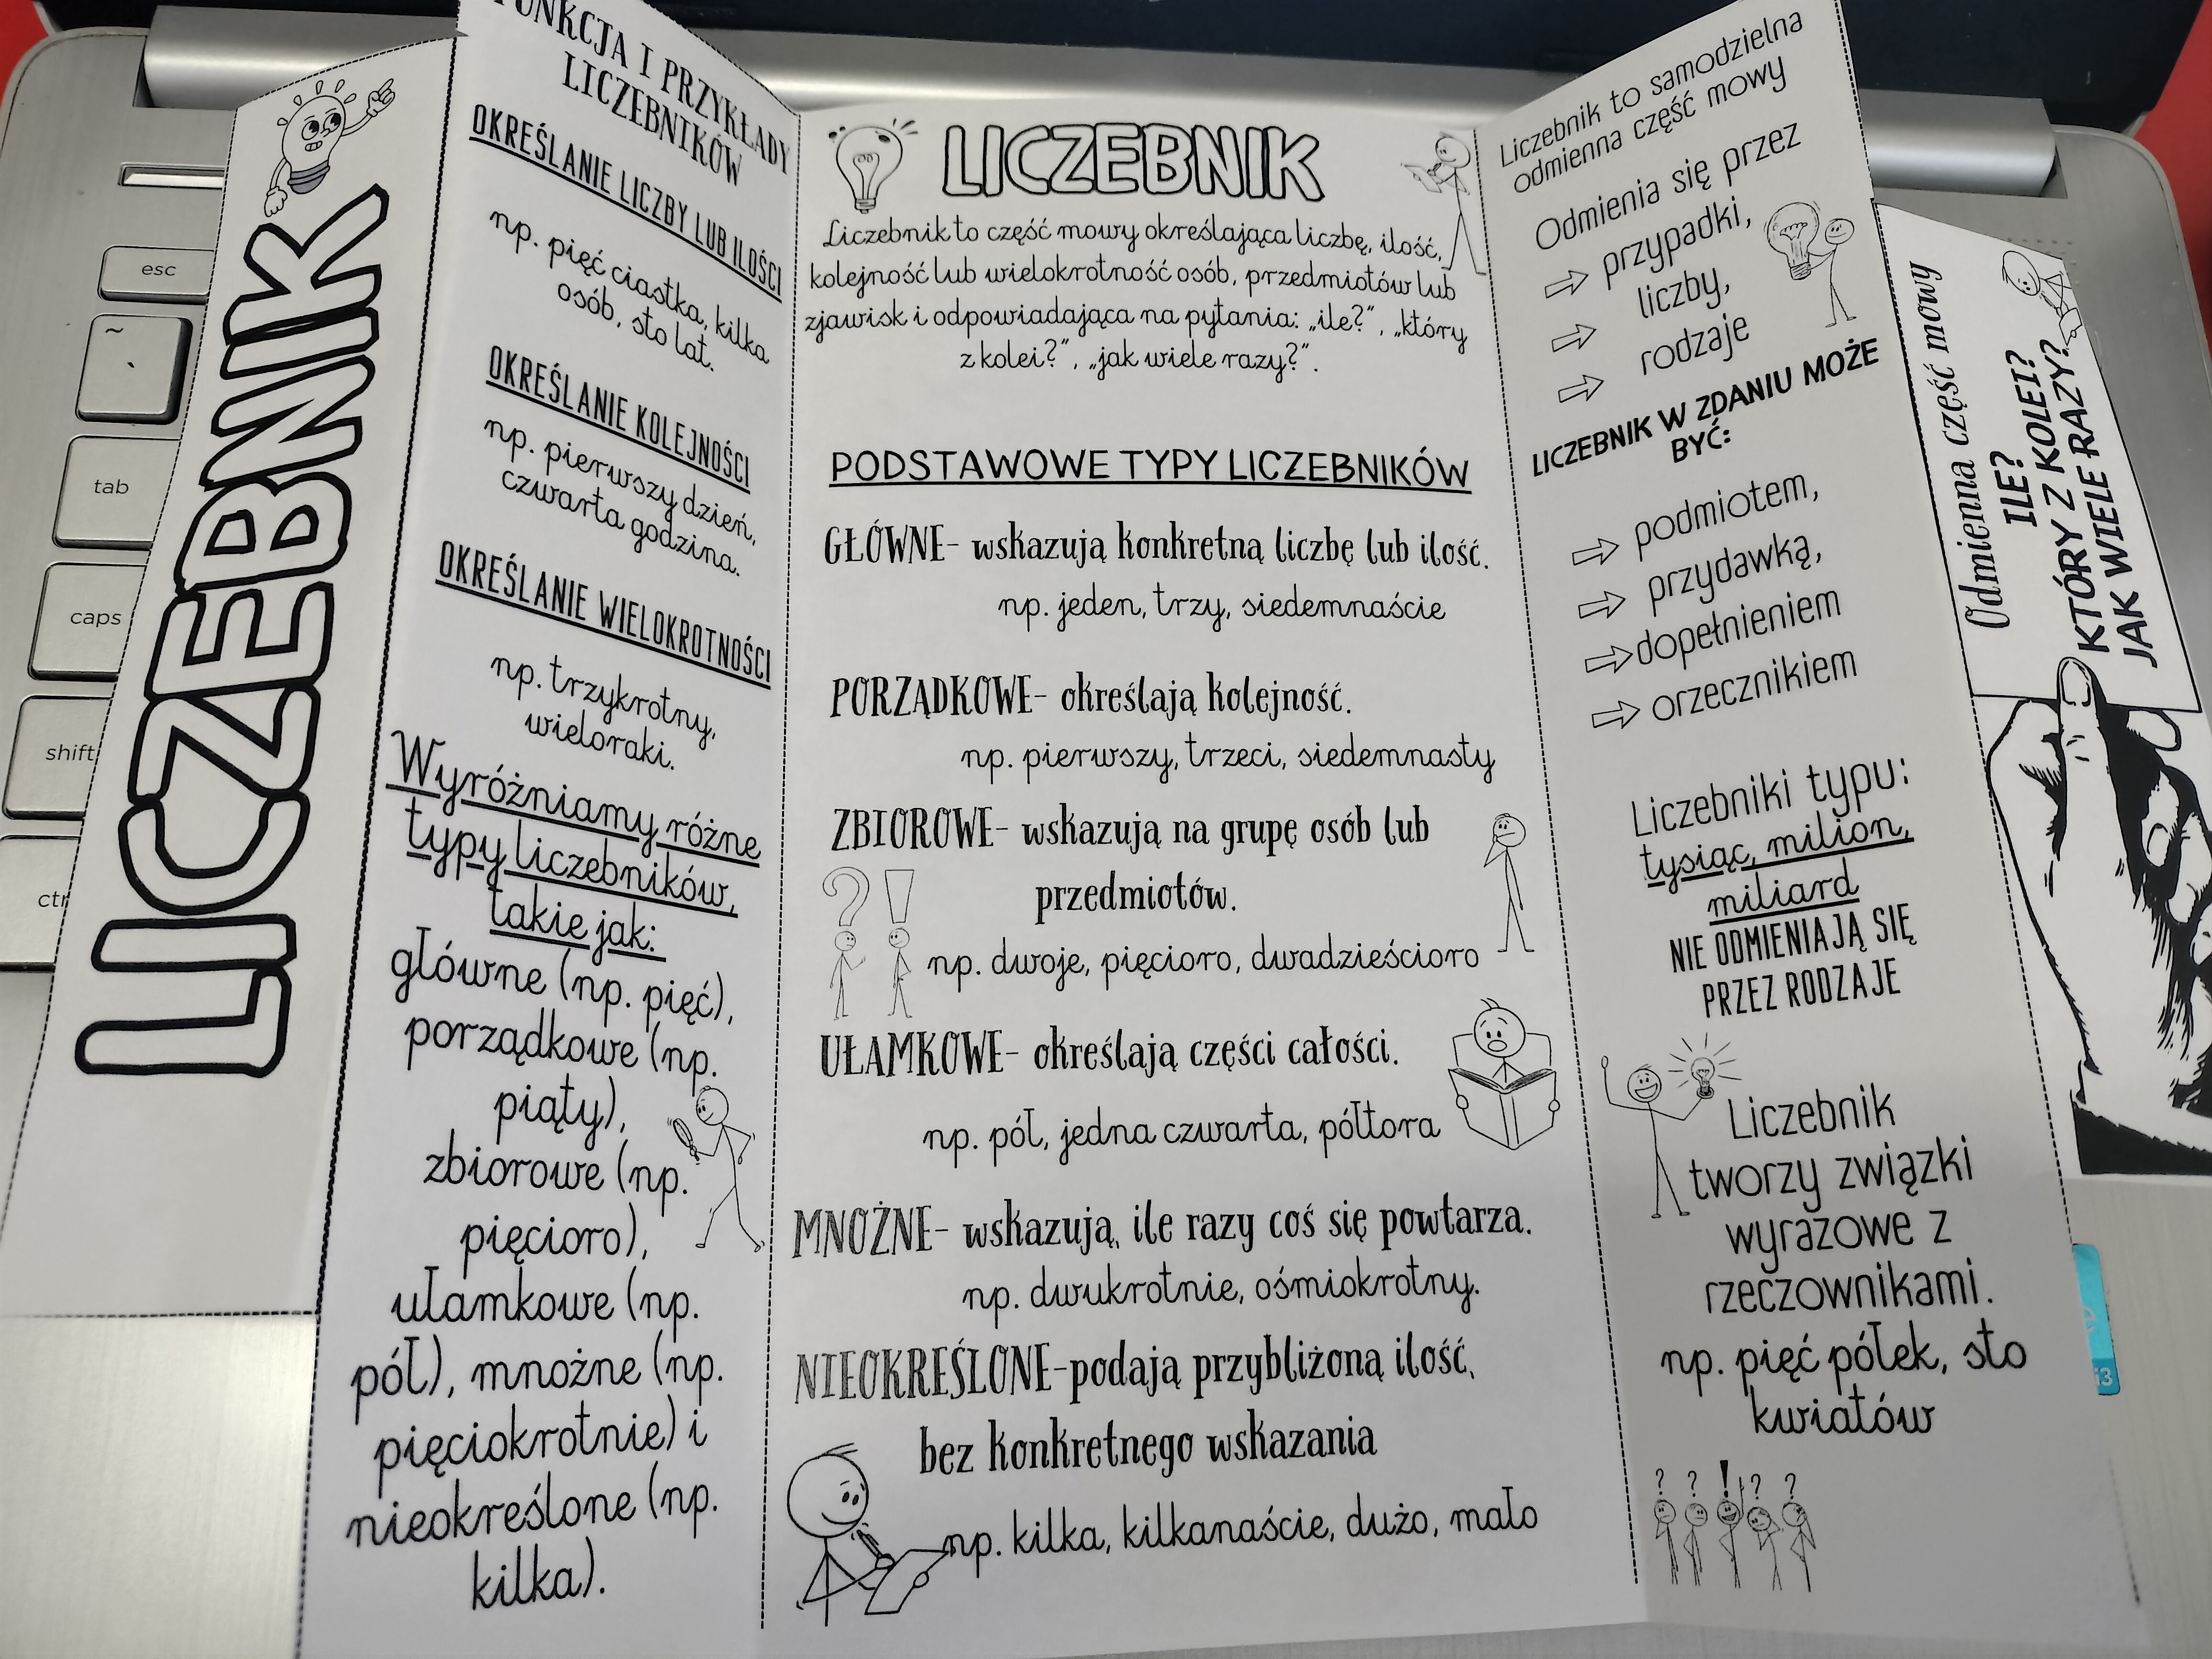 LICZEBNIK
FUNKCJA I PRZYKŁADY
LICZEBNIKÓW
OKREŚLANIE LICZBY LUB ILOŚCI
np. pięć ciastka, kilka
osób, sto lat.
OKREŚLANIE KOLEJNOŚCI
np. pierwszy dzień,
czwarta godzina.
OKREŚLANIE WIELOKROTNOŚCI
np. trzykrotny,
wieloraki.
Wyróżniamy różne
typy liczebników,
takie jak:
główne (np. pięć),
porządkowe (np.
piąty),
zbiorowe (np.
pięcioro),
ułamkowe (np.
pół), mnożne (np.
pięciokrotnie) i
nieokreślone (np.
kilka).
LICZEBNIK
Liczebnik to część mowy określająca liczbę, ilość,
kolejność lub wielokrotność osób, przedmiotów lub
zjawisk i odpowiadająca na pytania: „ile?”, „który
z kolei?”, „jak wiele razy?”.
PODSTAWOWE TYPY LICZEBNIKÓW
GŁÓWNE- wskazują konkretną liczbę lub ilość.
np. jeden, trzy, siedemnaście
PORZĄDKOWE- określają kolejność.
np. pierwszy, trzeci, siedemnasty
ZBIOROWE- wskazują na grupę osób lub
przedmiotów.
np. dwoje, pięcioro, dwadzieścioro
UŁAMKOWE- określają części całości.
np. pół, jedna czwarta, półtora
MNOŻNE- wskazują, ile razy coś się powtarza.
np. dwukrotnie, ośmiokrotny.
NIEOKREŚLONE-podają przybliżoną ilość,
bez konkretnego wskazania
np. kilka, kilkanaście, dużo, mało
Liczebnik to samodzielna
odmienna część mowy
Odmienia się przez
⇨ przypadki,
⇨ liczby,
⇨ rodzaje
LICZEBNIK W ZDANIU MOŻE
BYĆ:
⇨ podmiotem,
⇨ przydawką,
⇨ dopełnieniem
⇨ orzecznikiem
Liczebniki typu:
tysiąc, milion,
miliard
NIE ODMIENIAJĄ SIĘ
PRZEZ RODZAJE
Liczebnik
tworzy związki
wyrazowe z
rzeczownikami.
np. pięć półek, sto
kwiatów
? ? ! ? ?
Odmienna część mowy
ILE?
KTÓRY Z KOLEI?
JAK WIELE RAZY?
esc
~
tab
caps
shift
ctr
i3